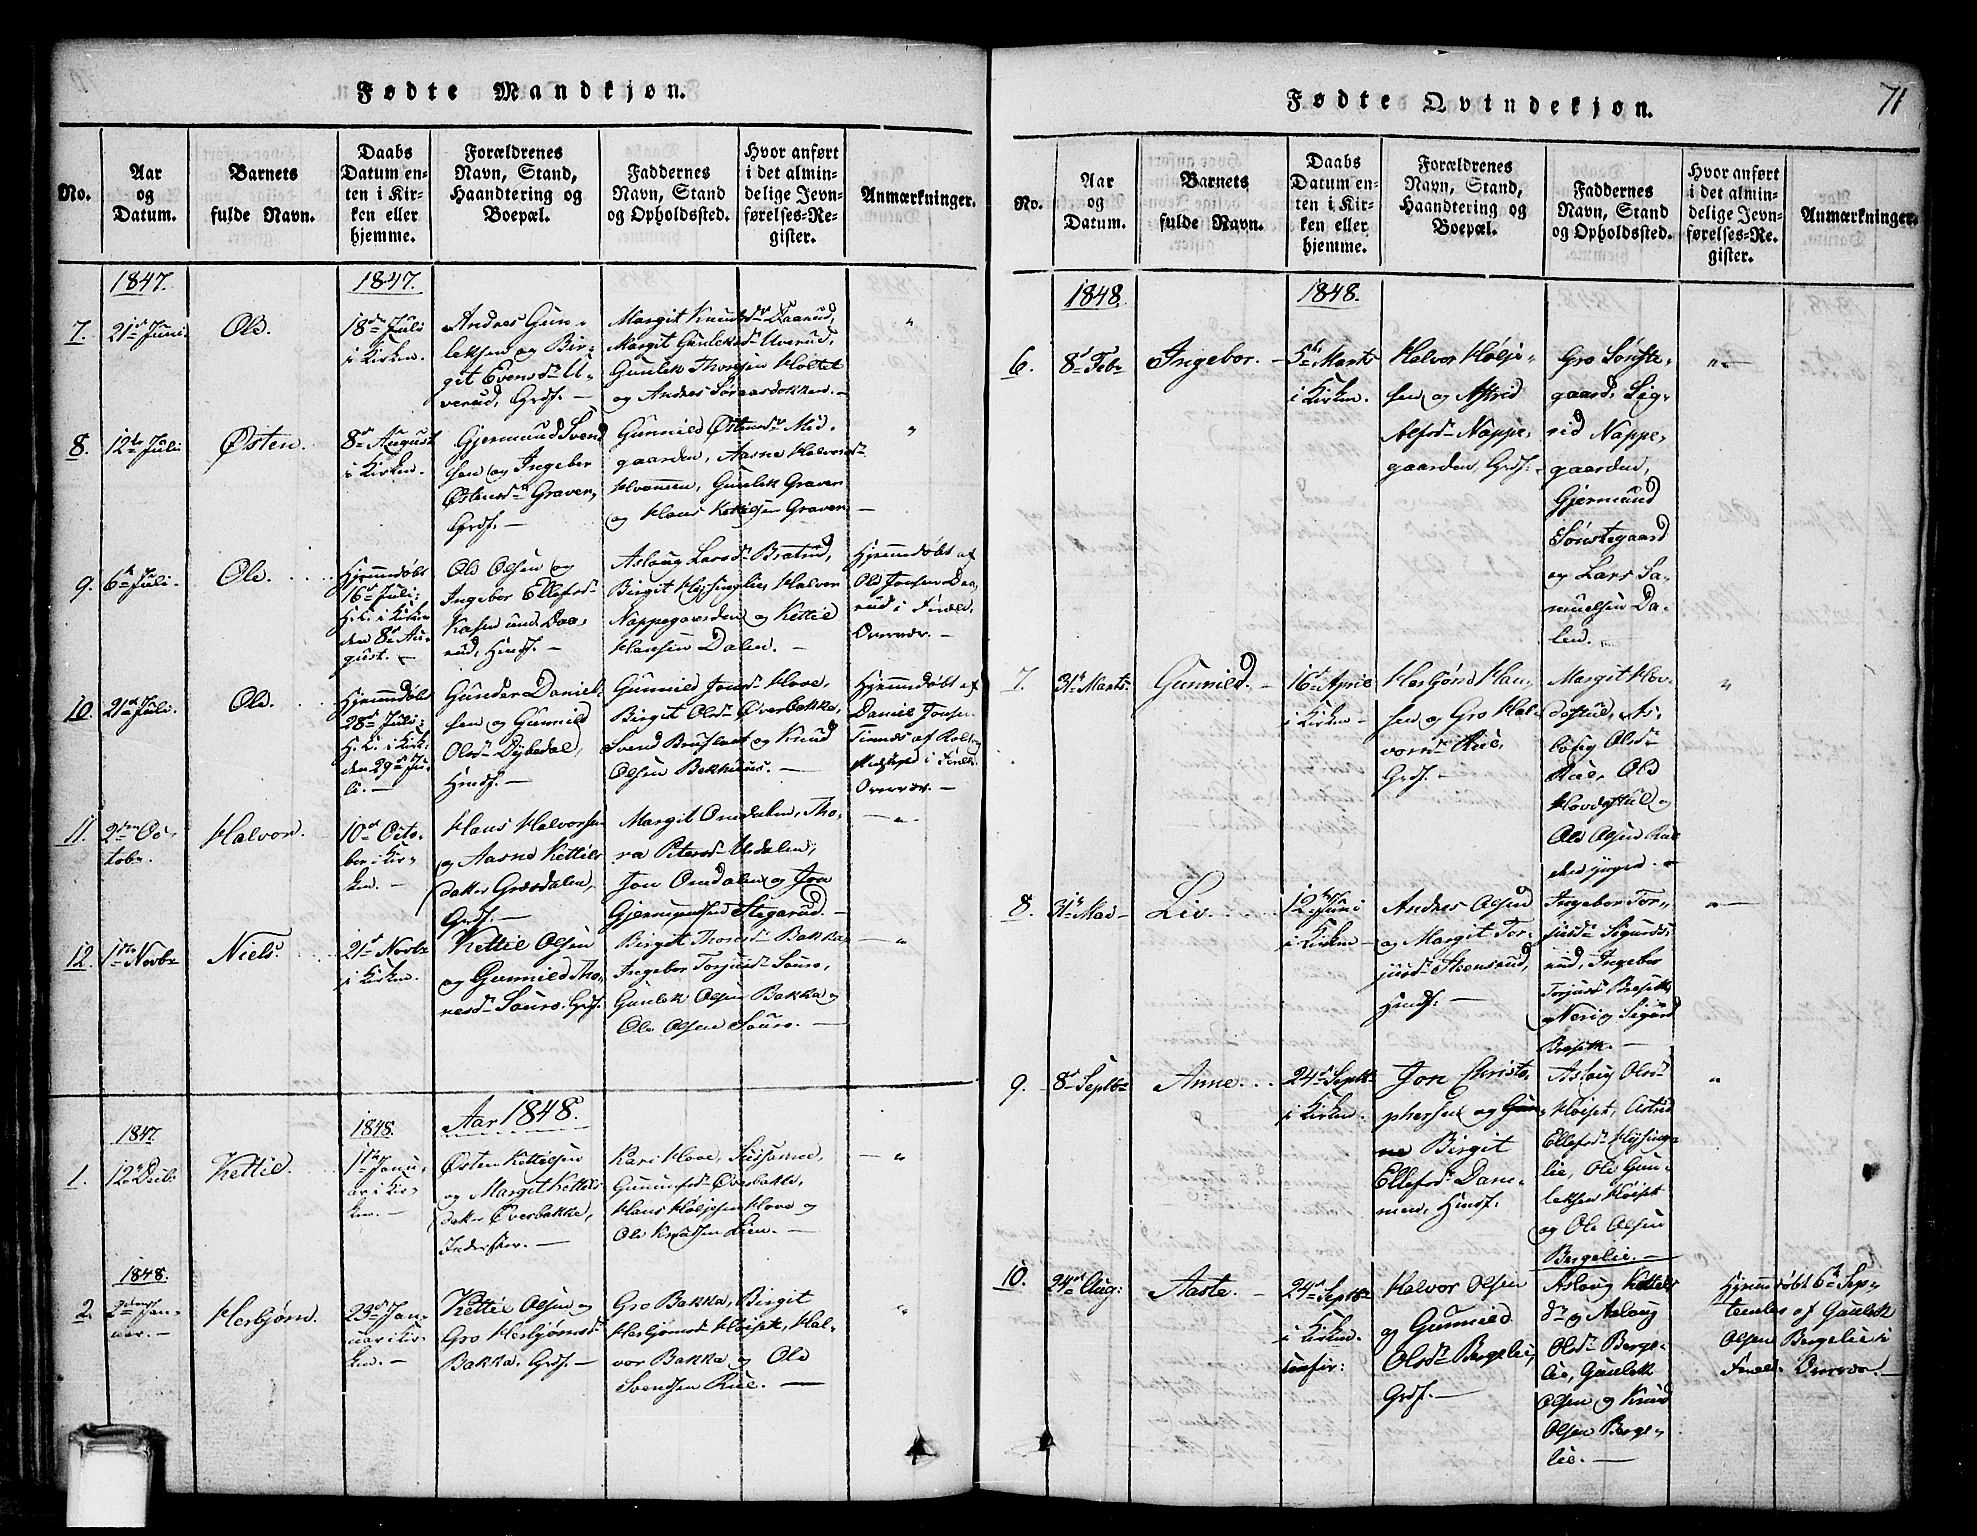 Fødte Mandkjøn.
No.
Aar
og
Datum.
Barnets
fulde Navn.
Daabs
Datum en-
ten i Kir-
ken eller
hjemme.
Forældrenes
Navn, Stand,
Haandtering og
Boepæl.
Faddernes
Navn, Stand
og Opholdssted.
Hvor anført
i det almin-
delige Jevn-
førelses-Re-
gister.
Anmærkninger.
1847.
1847.
7.
21de Juni.
Ole.
18de Juli
i Kirken.
Andres Gun-
leksen og Bir-
git Evensdr U-
verud, Grdf. —
Margit Knudsdr Daarud,
Margit Gunleksdr Uverud,
Gunlek Thorsen Holtet
og Andres Sørgaardokken. —
"
8.
12te Juli
Østen.
8de August
i Kirken.
Gjermund Svend
sen og Ingeber
Østensdr Graver,
Grdf. —
Gunnild Østensdr Med-
gaarden, Aasne Halvorsdr
Hvammen, Gunlek Graver
og Hans Kettilsen Graver —
"
9.
6te Juli.
Ole.
Hjemmdøbt
16de Juli:
H. i Kirken
den 8de Au-
gust. —
Ole Olsen og
Ingeber Ellefsdr
Kasen und. Daa-
rud, Huusf. —
Aslaug Larsdr Bratrud,
Birgit Høysinglie, Halvor
Nappegaarden og Kettil
Hansen Dalen. —
Hjemmdøbt af
Ole Jonsen Daa-
rud i Fred.
Overvær. —
10.
21de Juli.
Ole.
Hjemmdøbt
28de Juli:
H. i Kirk.
den 29de Ju-
li. —
Gunder Daniel-
sen og Gunnild
Olsdr Dybedal,
Huusf. —
Gunnild Jonsdr Hove,
Birgit Olsdr Øverbakka,
Svend Brufladt og Knud
Olsen Bekhuus. —
Hjemmdøbt af
Daniel Jonsen
Overvær. —
11.
2den Oc-
tobr.
Halvor.
10de Octo-
ber i Kir-
ken. —
Hans Halvorsen
og Aasne Kettils-
datter Græsdalen,
Grdf. —
Margit Omdalen, Tho-
ra Petersdr Updalen,
Jon Omdalen og Jon
Gjermundsen Stegarud. —
— " —
12.
1ste Novbr
Niels.
21de Novbr
i Kirken.
Kettil Olsen
og Gunnild Tho-
resdr Sauro. Grdf.
Birgit Thoresdr Bakka
Ingeber Torjusdr Sauro,
Gunlek Olsen Bakka og
Ole Olsen Sauro. —
— "
Aar 1848.
1847.
1848.
1.
12te Decbr
Kettil.
1ste Janu-
ar i Kir-
ken. —
Østen Kettilsen
og Margit Kettils-
datter Øverbakka,
Inderster. —
Kari Hove, Susanna
Gunnufsdr Øverbakka,
Hans Høljesen Hove og
Ole Knutsen Lien. —
— "
1848.
2.
2den Jan-
uar. —
Herbjørn.
23de Jan-
uar i Kir-
ken. —
Kettil Olsen og
Gro Herbjørnsdr
Bakka, Grdf. —
Gro Bakka, Birgit
Herbjørnsdr Høiset, Hal-
vor Bakka og Ole
Svendsen Rue. —
"
Fødte Qvindekjøn.
71
No.
Aar
og
Datum.
Barnets
fulde Navn.
Daabs
Datum en-
ten i Kir-
ken eller
hjemme.
Forældrenes
Navn, Stand,
Haandtering og
Boepæl.
Faddernes
Navn, Stand
og Opholdssted.
Hvor anført
i det almin-
delige Jevn-
førelses-Re-
gister.
Anmærkninger.
1848.
1848.
6.
8de Febr
Ingebor. —
5te Marts
i Kirken.
Halvor Hølje-
sen og Astrid
Alfsdr Nappe-
gaarden, Grdf. —
Gro Sønste-
gaard, Sig-
rid Nappe-
gaarden,
Gjermund
Sønstegaard
og Lars Sa-
muelsen Da-
len. —
" —
7.
31te Marts.
Gunnild. —
16de April
i Kirken —
Herbjørn Han-
sen og Gro Hal-
vorsdr Rue,
Grdf. —
Margit Hov-
destul, As-
borg Olsdr
Rue, Ole
Hovdestul og
Ole Olsen Rue
"
8.
31te Mai —
Liv. —
12te Juni
i Kirken —
Andres Olsen
og Margit Tor-
jusdr Steensrud,
Huusf: —
Ingebor Tor-
jusdr Sigurds-
rud, Ingebor
Torjusdr Bresitt
og Neri og Sigurd
Bresitt. —
" —
9.
8de Septbr
Anne. . . .
24de Septbr
i Kirken.
Jon Christo-
phersen og Gun-
ne Birgit
Ellefsdr Dam-
men, Huusf.
Aslaug Olsdr
Høiset, Astrid
Ellefsdr Høysing-
lie, Ole Gun-
leksen Høiset
og Ole Olsen
Bergelie. —
"
10.
24de Aug:
Aaste. —
24de Septbr
i Kirken
Halvor Olsen
og Gunnild
Olsdr Bergelie,
Grdf. —
Aslaug Kettils
dr og Aslaug
Olsdr Berge-
lie, Gunlek
Olsen og Knud
Olsen Berge-
lie. —
Hjemmdøbt 6te Sep-
tember af Gunlek
Olsen Bergelie i
Fred. Overvær. —